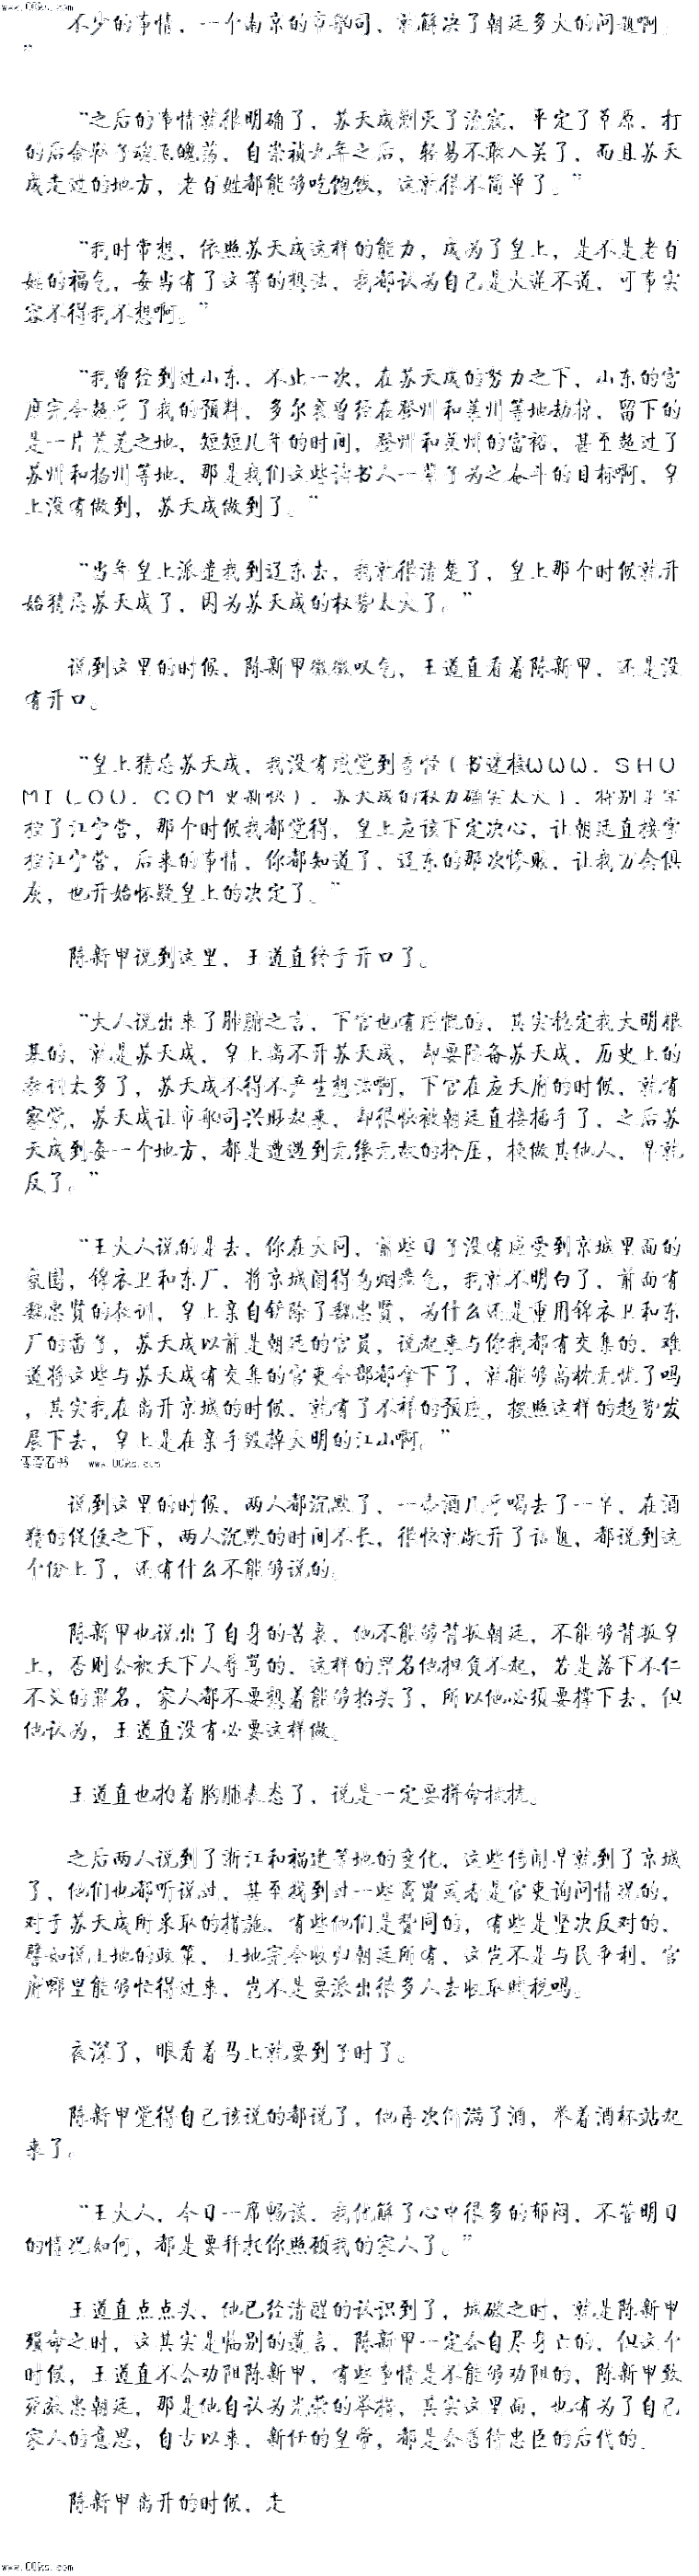 www.00ks.com
不少的事情，一个南京的市舶司，就解决了朝廷多大的问题啊。
”
“之后的事情就很明确了，苏天成剿灭了流寇，平定了草原，打
的后金鞑子魂飞魄荡，自崇祯九年之后，轻易不敢入关了，而且苏天
成走过的地方，老百姓都能够吃饱饭，这就很不简单了。”
“我时常想，依照苏天成这样的能力，成为了皇上，是不是老百
姓的福气，每当有了这等的想法，我都认为自己是大逆不道，可事实
容不得我不想啊。”
“我曾经到过山东，不止一次，在苏天成的努力之下，山东的富
庶完全超乎了我的预料，多尔衮曾经在登州和莱州等地劫掠，留下的
是一片荒芜之地，短短几年的时间，登州和莱州的富裕，甚至超过了
苏州和扬州等地，那是我们这些读书人一辈子为之奋斗的目标啊，皇
上没有做到，苏天成做到了。”
“当年皇上派遣我到辽东去，我就很清楚了，皇上那个时候就开
始猜忌苏天成了，因为苏天成的权势太大了。”
说到这里的时候，陈新甲微微叹气，王道直看着陈新甲，还是没
有开口。
“皇上猜忌苏天成，我没有感觉到奇怪（书迷楼ＷＷＷ．ＳＨＵ
ＭＩＬＯＵ．ＣＯＭ更新快），苏天成的权力确实太大了，特别是掌
控了江宁营，那个时候我都觉得，皇上应该下定决心，让朝廷直接掌
控江宁营，后来的事情，你都知道了，辽东的那次惨败，让我万念俱
灰，也开始怀疑皇上的决定了。”
陈新甲说到这里，王道直终于开口了。
“大人说出来了肺腑之言，下官也有感慨的，其实稳定我大明根
基的，就是苏天成，皇上离不开苏天成，却要防备苏天成，历史上的
教训太多了，苏天成不得不产生想法啊，下官在应天府的时候，就有
察觉，苏天成让市舶司兴旺起来，却很快被朝廷直接插手了，之后苏
天成到每一个地方，都是遭遇到无缘无故的挤压，换做其他人，早就
反了。”
“王大人说的是去，你在大同，前些日子没有感受到京城里面的
氛围，锦衣卫和东厂，将京城闹得乌烟瘴气，我就不明白了，前面有
魏忠贤的教训，皇上亲自铲除了魏忠贤，为什么还是重用锦衣卫和东
厂的番子，苏天成以前是朝廷的官员，说起来与你我都有交集的，难
道将这些与苏天成有交集的官吏全部都拿下了，就能够高枕无忧了吗
，其实我在离开京城的时候，就有了不祥的预感，按照这样的趋势发
展下去，皇上是在亲手毁掉大明的江山啊。”
零零看书 www.00ks.com
说到这里的时候，两人都沉默了，一壶酒几乎喝去了一半，在酒
精的促使之下，两人沉默的时间不长，很快就敞开了话题，都说到这
个份上了，还有什么不能够说的。
陈新甲也说出了自身的苦衷，他不能够背叛朝廷，不能够背叛皇
上，否则会被天下人辱骂的，这样的罪名他担负不起，若是落下不仁
不义的罪名，家人都不要想着能够抬头了，所以他必须要撑下去，但
他认为，王道直没有必要这样做。
王道直也拍着胸脯表态了，说是一定要拼命抵抗。
之后两人说到了浙江和福建等地的变化，这些传闻早就到了京城
了，他们也都听说过，甚至找到过一些商贾或者是官吏询问情况的，
对于苏天成所采取的措施，有些他们是赞同的，有些是坚决反对的，
譬如说土地的政策，土地完全收归朝廷所有，这岂不是与民争利，官
府哪里能够忙得过来，岂不是要派出很多人去收取赋税吗。
夜深了，眼看着马上就要到子时了。
陈新甲觉得自己该说的都说了，他再次倒满了酒，举着酒杯站起
来了。
“王大人，今日一席畅谈，我化解了心中很多的郁闷，不管明日
的情况如何，都是要拜托你照顾我的家人了。”
王道直点点头，他已经清醒的认识到了，城破之时，就是陈新甲
殒命之时，这其实是临别的遗言，陈新甲一定会自尽身亡的，但这个
时候，王道直不会劝阻陈新甲，有些事情是不能够劝阻的，陈新甲致
死效忠朝廷，那是他自认为光荣的举措，其实这里面，也有为了自己
家人的意思，自古以来，新任的皇帝，都是会善待忠臣的后代的。
陈新甲离开的时候，走
www.00ks.com